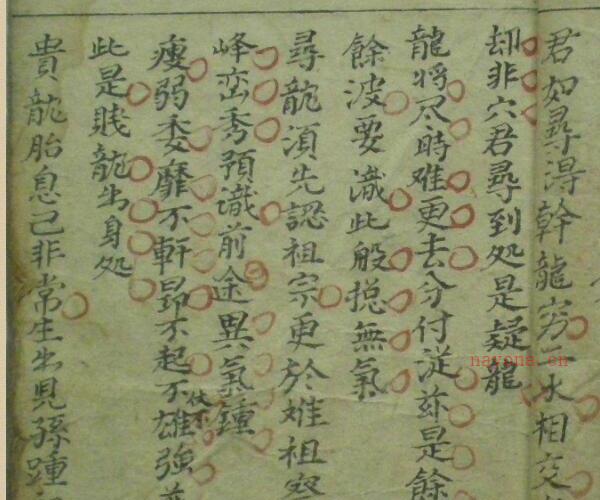 君如尋得幹龍穷二水相交
却非穴君尋到処是疑龍
龍将尽時难更去分付從茲是餘
餘波要識此般揔無氣
尋龍湏先認祖宗更於难祖察
峰峦秀預識前途異氣鍾
瘦弱委靡不軒昂不起不雄強
伏不
此是賎龍出身処
貴龍胎息已非常生出兒孫踵
nayona.cn